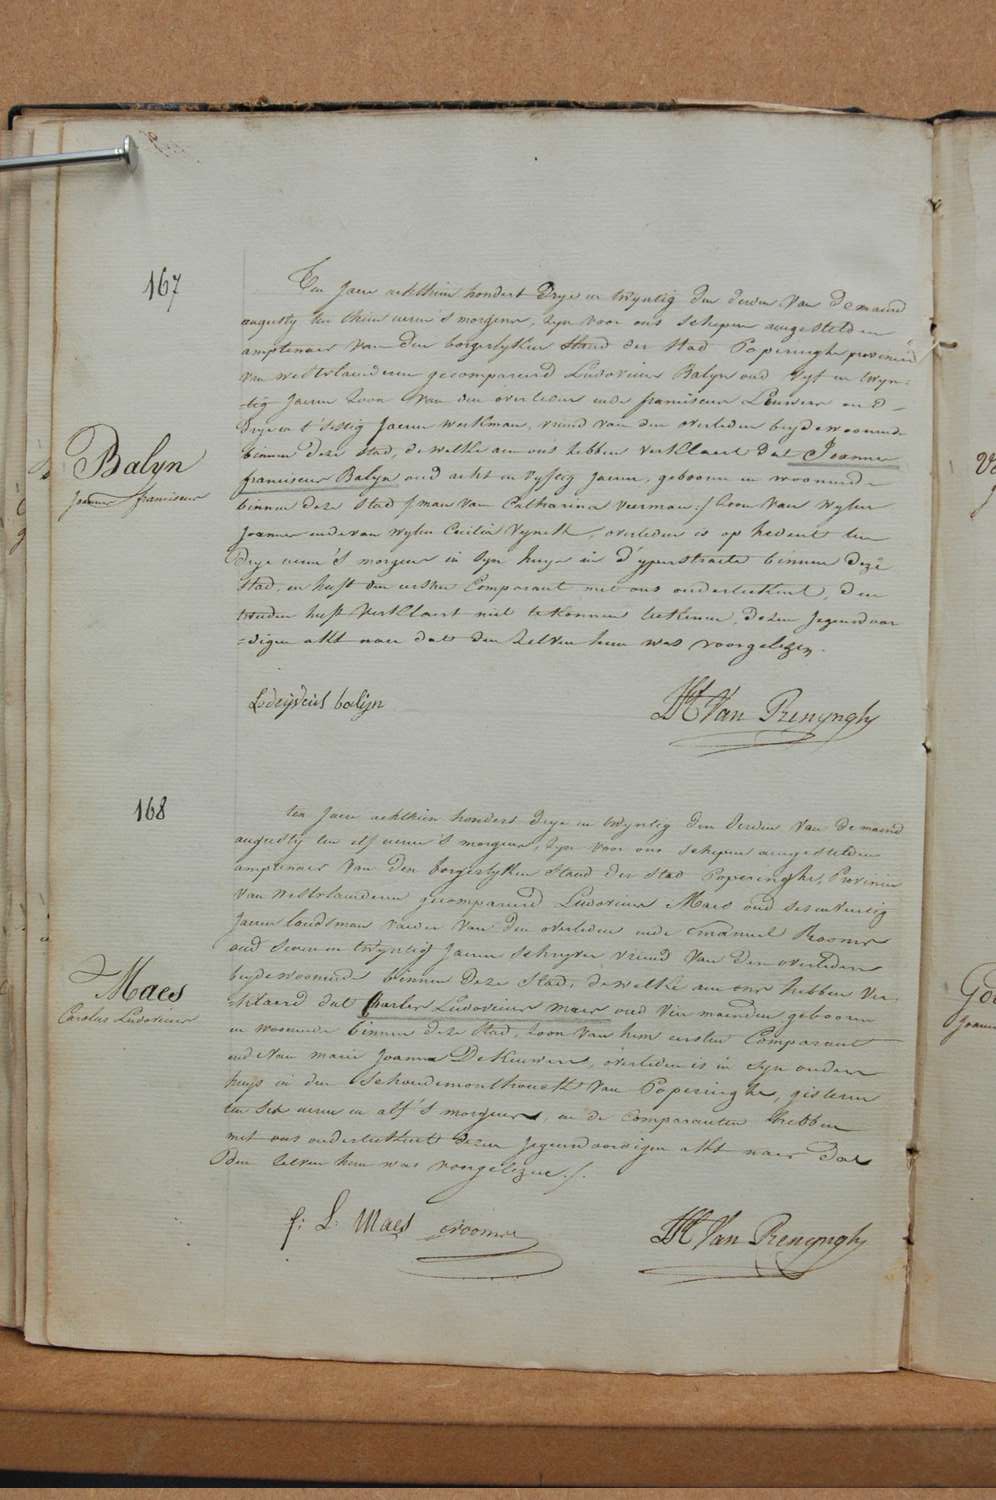 167
Balyn
Joannes franciscus
Ten Jaere achthien hondert Drye en twyntig den derden van de maend
augusty ten thien ueren 's morgens, zyn voor ons schepen aengestelden
amptenaer van den borgerlyken stand der stad Poperinghe provincie
van westvlaenderen gecompareerd Ludovicus Balyn oud vyf en twyn-
-tig Jaeren zoon van den overleden ende franciscus Leuwers oud
drye en t'sestig Jaeren werkman, vriend van den overleden beyde woonende
binnen deze stad, de welke aen ons hebben verklaert dat Joannes
franciscus Balyn oud acht en vyftig Jaeren, gebooren en woonende
binnen deze stad /man van Catharina Veerman:/ zoon van wylen
Joannes ende van wylen Cecilia Vynck, overleden is op hedent ten
drye ueren 's morgens in zyn huys in d'yperstraete binnen deze
stad, en heeft den eersten Comparant met ons onderteekent, den
tweeden heeft verklaert niet te konnen teekenen, dezen jegenwoor
=digen akt naer dat den zelven hem was voorgelezen.
Lodeyvicus balijn
Van Renynghe
168
Maes
Carolus Ludovicus
ten Jaere achthien hondert drye en twyntig den derden van de maend
augusty ten elf ueren 's morgens, zyn voor ons schepen aengestelden
amptenaer van den borgerlyken stand der stad Poperinghe, Provincie
van westvlaenderen gecompareerd Ludovicus Maes oud ses en veertig
Jaeren landsman vader van den overleden ende Emanuel Rooms
oud seven en twyntig Jaeren schryver vriend van den overleden
beyde woonende binnen deze stad, de welke aen ons hebben ver-
-klaerd dat Charles Ludovicus Maes oud vier maenden gebooren
en woonende binnen deze stad, zoon van hem eersten Comparant
ende van marie Joanna DeKeuwers, overleden is in zyn ouders
huys in den schoudemonthouck van Poperinghe, gisteren
ten ses ueren en alf 's morgens, en de comparanten hebben
met ons onderteekent dezen jegenwoordigen akt naer dat
den zelven hun was voorgelezen./.
f: L: Maes erooms
Van Renynghe